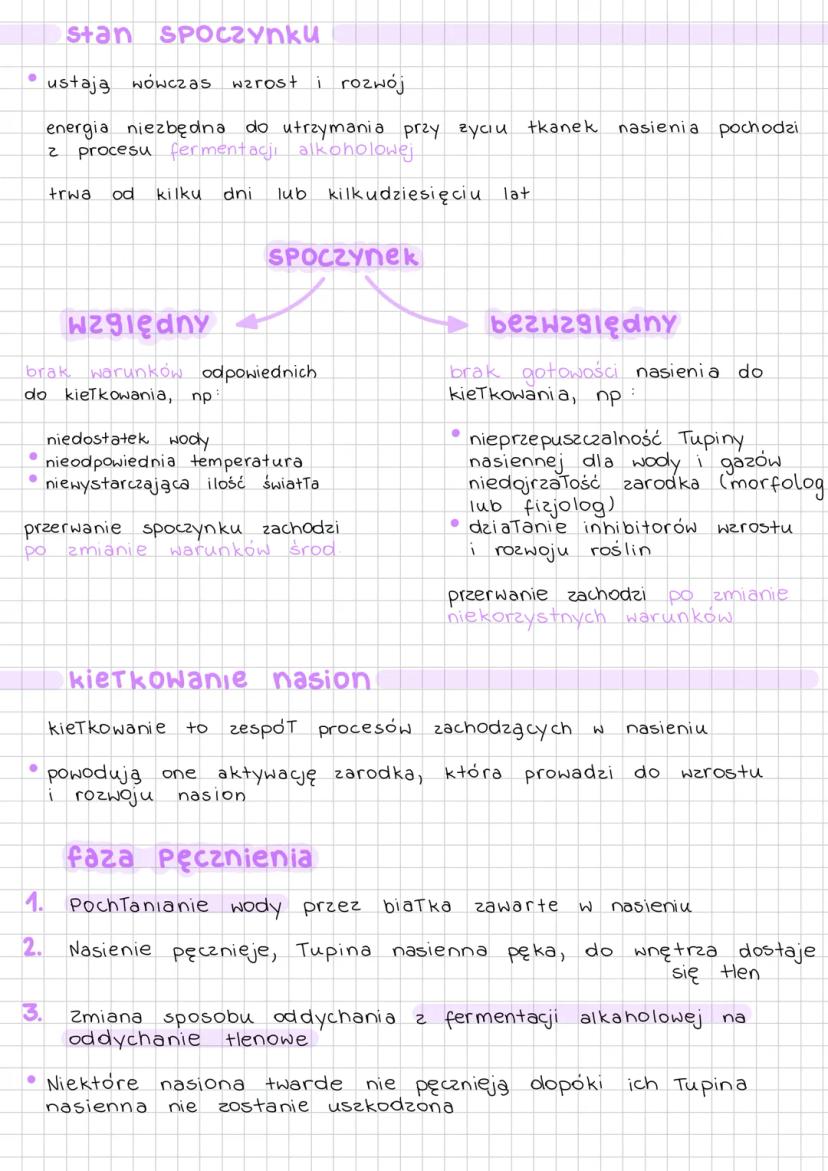 stan spoczynku
• ustają wówczas wzrost i rozwój
energia niezbędna do utrzymania przy życiu tkanek nasienia pochodzi
z procesu fermentacji alkoholowej
trwa od kilku dni lub kilkudziesięciu lat
spoczynek
względny
bezwzględny
brak warunków odpowiednich
do kiełkowania, np:
niedostatek wody
• nieodpowiednia temperatura
• niewystarczająca ilość światła
przerwanie spoczynku zachodzi
po zmianie warunków środ.
brak gotowości nasienia do
kiełkowania, np:
• nieprzepuszczalność łupiny
nasiennej dla wody i gazów
niedojrzałość zarodka (morfolog
lub fizjolog)
• działanie inhibitorów wzrostu
i rozwoju roślin
przerwanie zachodzi po zmianie
niekorzystnych warunków
kiełkowanie nasion
kiełkowanie to zespół procesów zachodzących w nasieniu
• powodują one aktywację zarodka, która prowadzi do wzrostu
i rozwoju nasion
faza pęcznienia
1. Pochłanianie wody przez białka zawarte w nasieniu
2. Nasienie pęcznieje, łupina nasienna pęka, do wnętrza dostaje
się tlen
3. Zmiana sposobu oddychania z fermentacji alkaholowej na
oddychanie tlenowe
• Niektóre nasiona twarde nie pęcznieją dopóki ich łupina
nasienna nie zostanie uszkodzona